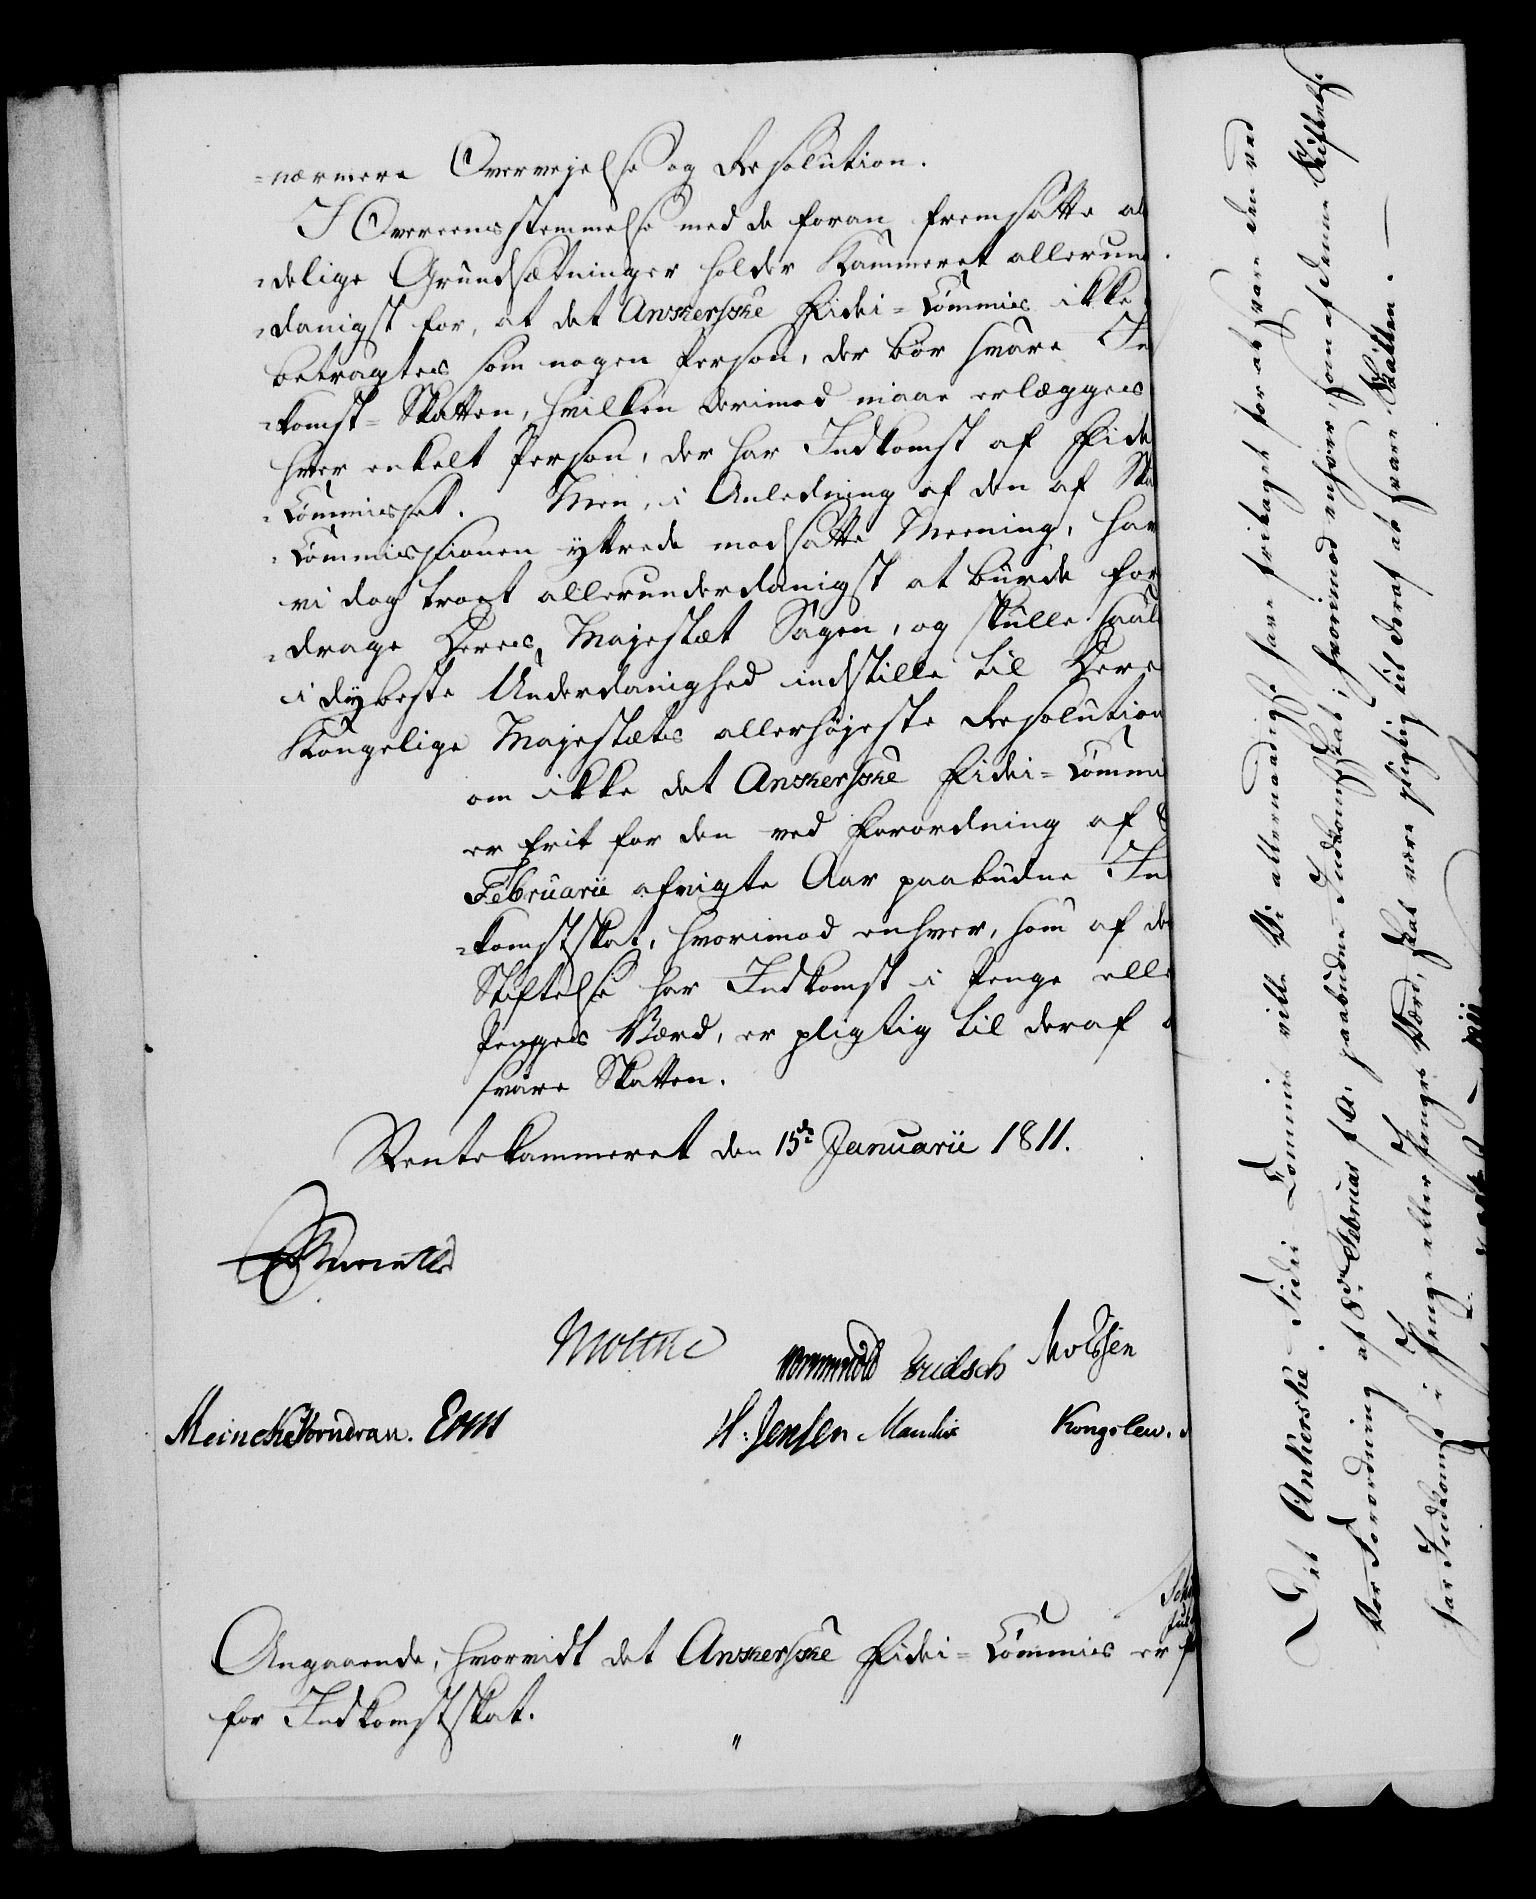 =nærmere Overvejelse og Resolution.
I Overeensstemmelse med de foran fremsatte al
=delige Grundsætninger holder Kammeret allerun
=danigst for, at det Ankerske Fidei=Commis ikke
betragtes som nogen Person, der bør svare In
=komst=Skatten, hvilken derimod maae erlægges
hver enkelt Person, der har Indkomst af Fide
=Commisset. Men, i Anledning af den af Ska
=Commissionen yttrede modsatte Meening, har
vi dog troet allerunderdanigst at burde fore
=drage Deres Majestæt Sagen, og skulle saale
i dybeste Underdanighed indstille til Dere
Kongelige Majestæts allerhøjeste Resolution
om ikke det Ankerske Fidei=Commi
er frit for den ved Forordning af 8
Februarii afvigte Aar paabudne In
=komstskat, hvorimod enhver, som af de
Stiftelse har Indkomst i Penge elle
Penges Værd, er pligtig til deraf a
svare Skatten.
Rentekammeret den 15de Januarii 1811.
Moltke
Wormskiold Knudsen Moldsen
Meincke Vorndran. Erm H: Jensen Manthe Kongslew.
Angaaende, hvorvidt det Ankerske Fidei=Commis er f
for Indkomstskat.
"
Det Ankerske Fidei Commis ville Vi allernaadigst have fritaget for at svare den ved
Vor Forordning af 8de Februar f. A. paabudne Indkomstskat; hvorimod enhver, som af denne Stiftelse
har Indkomst i Penge eller Penges Værd, skal være pligtig til deraf at svare Skatten. —